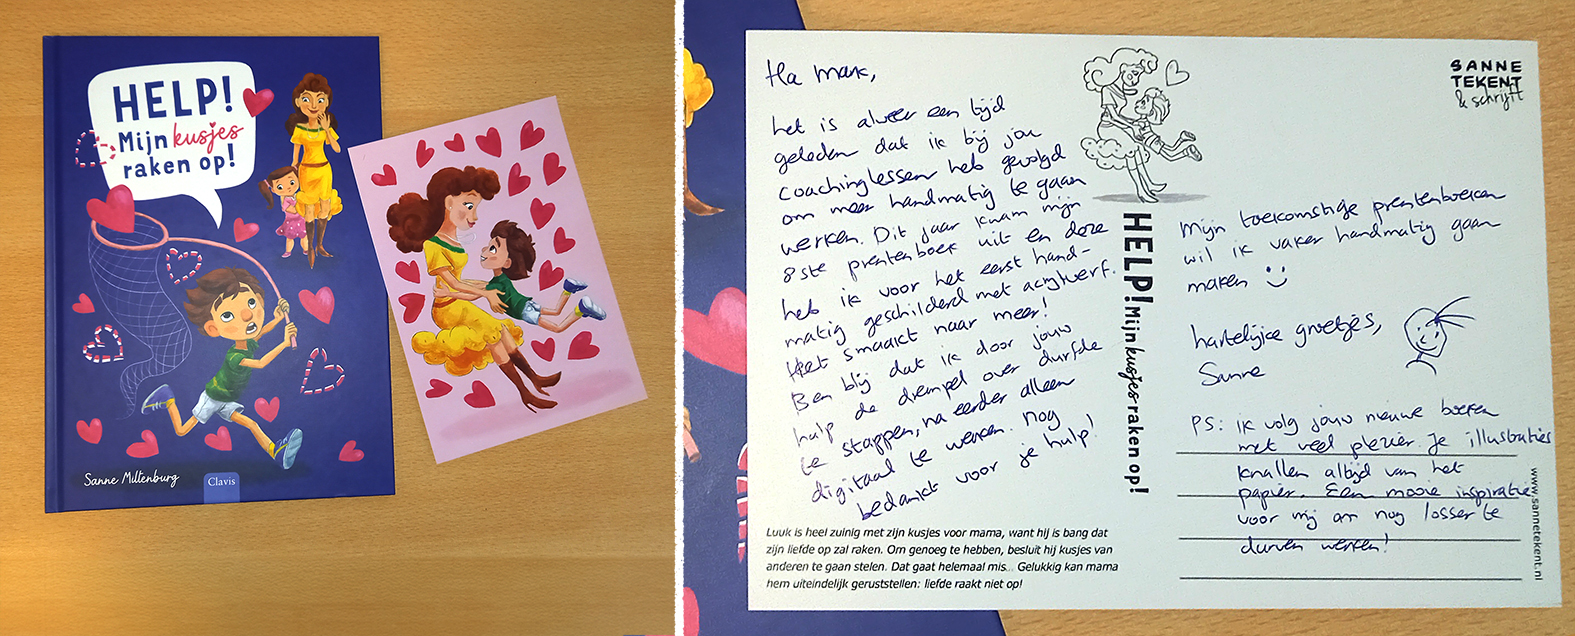 HELP!
Mijn kusjes
raken op!
Sanne Miltenburg
Clavis
Ha Mark,
het is alweer een tijd
geleden dat ik bij jou
coachinglessen heb gevolgd
om meer handmatig te gaan
werken. Dit jaar kwam mijn
8ste prentenboek uit en deze
heb ik voor het eerst hand-
matig geschilderd met acrylverf.
Het smaakt naar meer!
Ben blij dat ik door jouw
hulp de drempel over durfde
te stappen, na eerder alleen
digitaal te werken. Nog
bedankt voor je hulp!
Luuk is heel zuinig met zijn kusjes voor mama, want hij is bang dat
zijn liefde op zal raken. Om genoeg te hebben, besluit hij kusjes van
anderen te gaan stelen. Dat gaat helemaal mis... Gelukkig kan mama
hem uiteindelijk geruststellen: liefde raakt niet op!
HELP! Mijn kusjes raken op!
SANNE
TEKENT
& schrijft
Mijn toekomstige prentenboeken
wil ik vaker handmatig gaan
maken
hartelijke groetjes,
Sanne
PS: ik volg jouw nieuwe boeken
met veel plezier. Je illustraties
knallen altijd van het
papier. Een mooie inspiratie
voor mij om nog losser te
durven werken!
www.sannetekent.nl